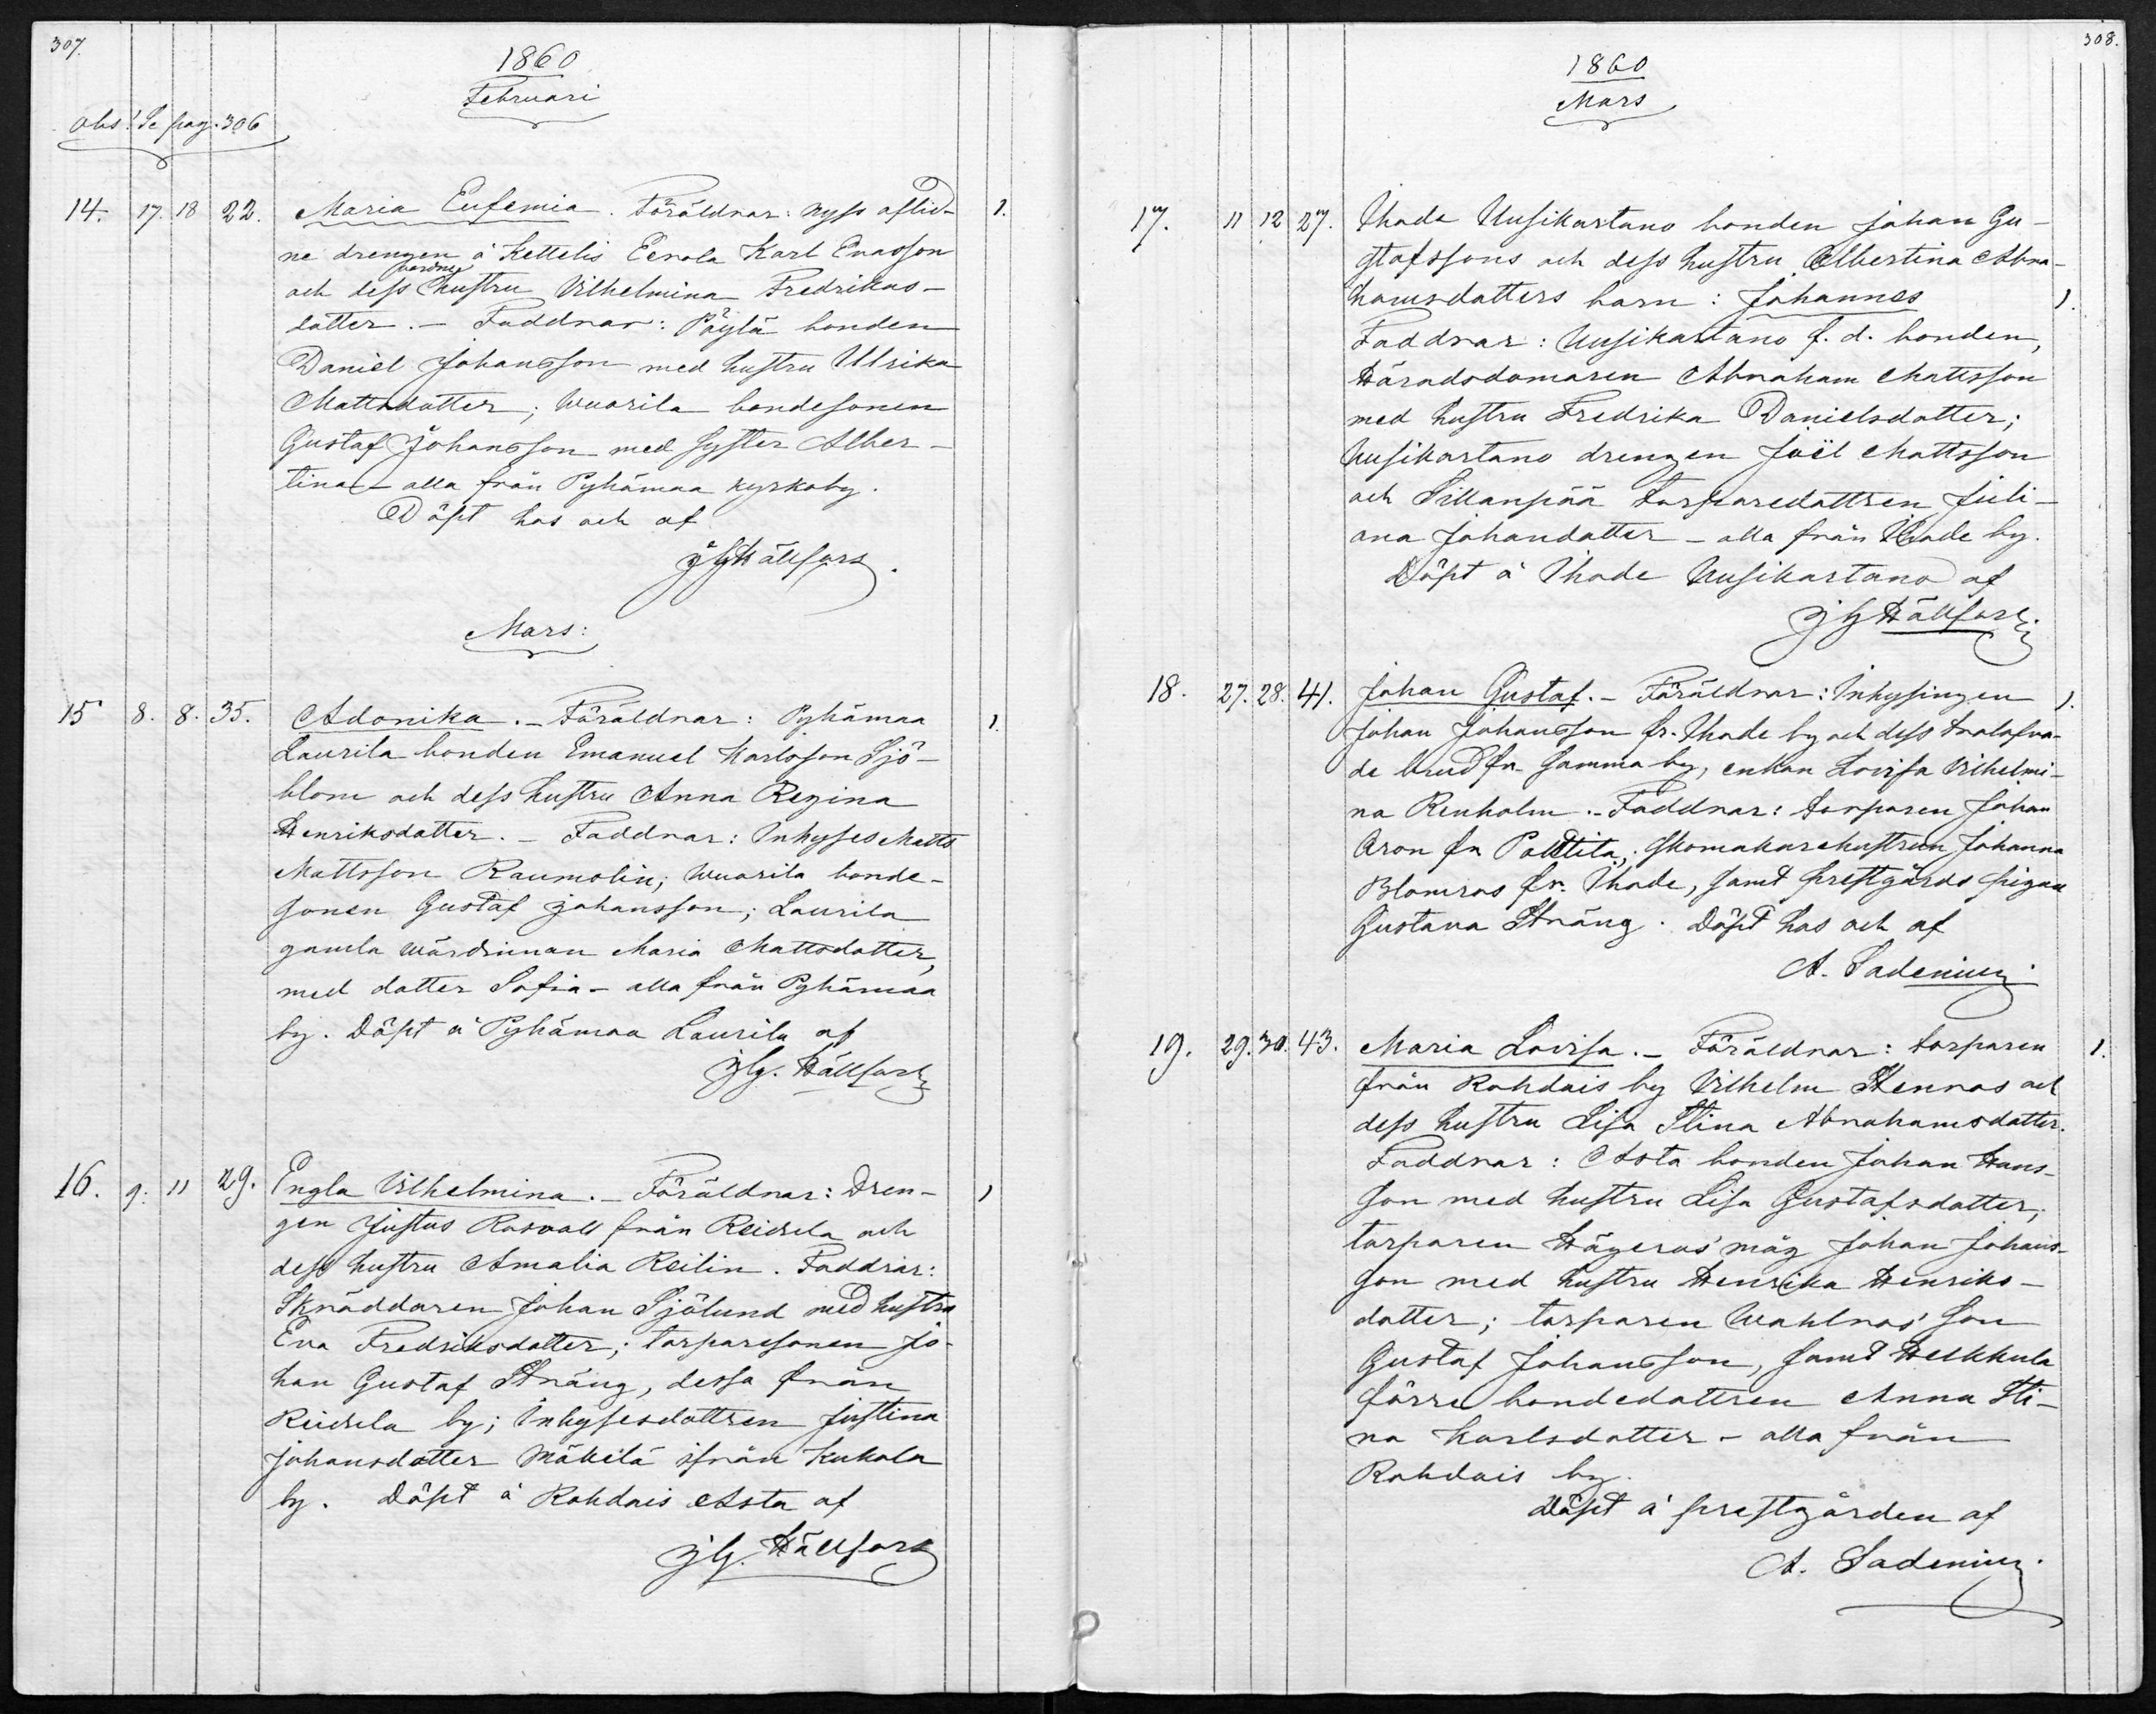 307.
1860
Februari
obs! Se pag. 306
14. 17. 18 22. Maria Eufemia. Föräldrar: nyss aflid- 1.
ne drengen å Kettelis Eerola Karl Enasson
värdne
och dess hustru Vilhelmina Fredriks-
datter. – Faddrar: Pöylä bonden
Daniel Johansson med hustru Ulrika
Mattsdatter; Wuorila bondesonen
Gustaf Johansson med syster Alber-
tina – alla från Pyhämaa kyrkoby.
Döpt hos och af
JG Hällfors.
Mars:
15 8. 8. 35. Adonika. – Föräldrar: Pyhämaa 1.
Laurila bonden Emanuel Karlsson Sjö-
blom och dess hustru Anna Regina
Henriksdatter. – Faddrar: Inhyses Matts
Mattsson Raumolin; Wuorila bonde-
sonen Gustaf Johansson; Laurila
gamla wärdinnan Maria Mattsdatter,
med datter Sofia – alla från Pyhämaa
by. Döpt å Pyhämaa Laurila af
JG. Hällfors
16. 9. 11 29. Engla Vilhelmina. – Föräldrar: Dren- 1
gen Justus Rosvall från Reidila och
dess hustru Amalia Reilin. Faddrar:
Skräddaren Johan Sjölund med hustru
Eva Fredriksdatter; torparesonen Jo-
han Gustaf Sträng, dessa från
Reidila by; Inhysesdottren Justina
Johansdatter Mäkilä ifrån Kukola
by. Döpt å Rohdais Asta af
JG. Hällfors
308.
1860
Mars
17. 11 12 27. Ihode Uusikartano bonden Johan Gu-
stafssons och dess hustru Albertina Abra-
hamsdatters barn: Johannes 1.
Faddrar: Uusikartano f. d. bonden,
Häradsdomaren Abraham Mattsson
med hustru Fredrika Danielsdatter;
Uusikartano drengen Joël Mattsson
och Sillanpää torparedottren Juli-
ana Johansdatter – alla från Ihode by.
Döpt å Ihode Uusikartano af
JG Hällfors.
18. 27. 28. 41. Johan Gustaf. – Föräldrar: Inhysingen 1.
Johan Johansson fr. Ihode by och dess trolofva-
de brud fr. samma by, enkan Lovisa Vilhelmi-
na Renholm. – Faddrar: torparen Johan
Aron fr. Polttila; skomakarehustrun Johanna
Blomros fr. Ihode, samt prestgårds pigan
Gustava Sträng. Döpt hos och af
A. Sadenius.
19. 29. 30. 43. Maria Lovisa. – Föräldrar: torparen 1.
från Rohdais by Vilhelm Stenros och
dess hustru Lisa Stina Abrahamsdatter.
Faddrar: Asta bonden Johan Hans-
son med hustru Lisa Gustafsdatter;
torparen Hägeros' måg Johan Johans-
son med hustru Henrika Henriks-
datter; torparen Wahlros' son
Gustaf Johansson, samt Heikkula
förre bondedottren Anna Sti-
na Karlsdatter – alla från
Rohdais by.
Döpt å prestgården af
A. Sadenius.